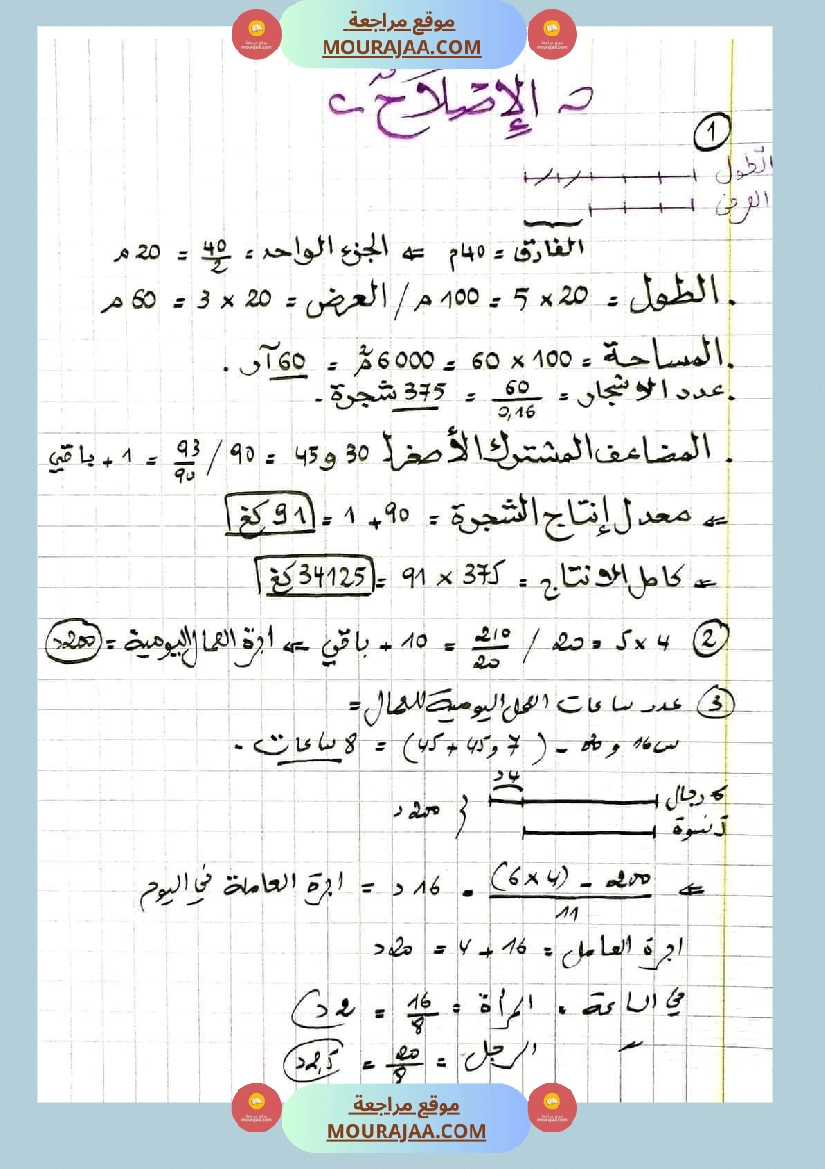 موقع مراجعة
MOURAJAA.COM
الإصلاح
1
الطول
العرض
الفارق = 40م ⇐ الجزء الواحد = 40/2 = 20 م
. الطول = 20 × 5 = 100 م / العرض = 20 × 3 = 60 م
. المساحة = 100 × 60 = 6000 م² = 60 آر .
. عدد الاشجار = 60/0,16 = 375 شجرة .
. المضاعف المشترك الأصغر لـ 30 و 45 = 90 / 93/90 = 1 + باقي
⇐ معدل إنتاج الشجرة = 90 + 1 = 91 كغ
⇐ كامل الانتاج = 375 × 91 = 34125 كغ
2 4 × 5 = 20 / 210/20 = 10 + باقي ⇐ اجرة العمال اليومية = 200 د
3 عدد ساعات العمل اليومية للعمال =
16 س و 00 - ( 7 و 45 + 45 ) = 8 ساعات .
4 د
رجال
نسوة
200 د
⇐ 200 - (4 × 6) / 11 = 16 د = اجرة العاملة في اليوم
اجرة العامل = 16 + 4 = 20 د
في الساعة . المرأة = 16/8 = 2 د
" الرجل = 20/8 = 2,5 د
موقع مراجعة
MOURAJAA.COM